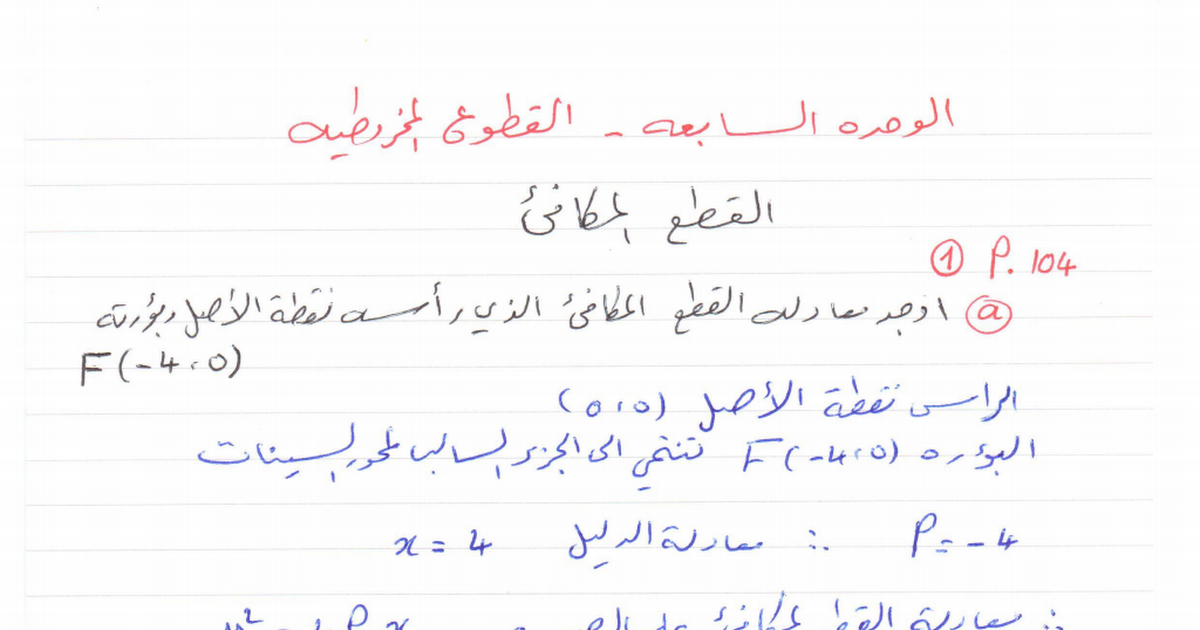 الوحده السابعه - القطوع المخروطيه
القطع المكافئ
① P. 104
ⓐ اوجد معادله القطع المكافئ الذي رأسه نقطة الأصل وبؤرته
F(-4،0)
الراس نقطة الأصل (0،0)
البؤره F(-4،0) تنتمي الى الجزء السالب لمحور السينات
P = -4 ∴ معادلة الدليل x = 4
∴ معادلة القطع المكافئ على الصورة